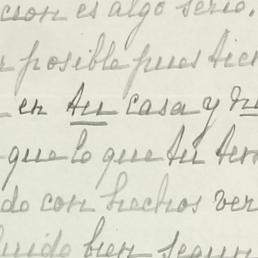 cion es algo serio.
posible pues tien
en tu casa y n
que lo que tú ten
do con hechos ver
bien segun